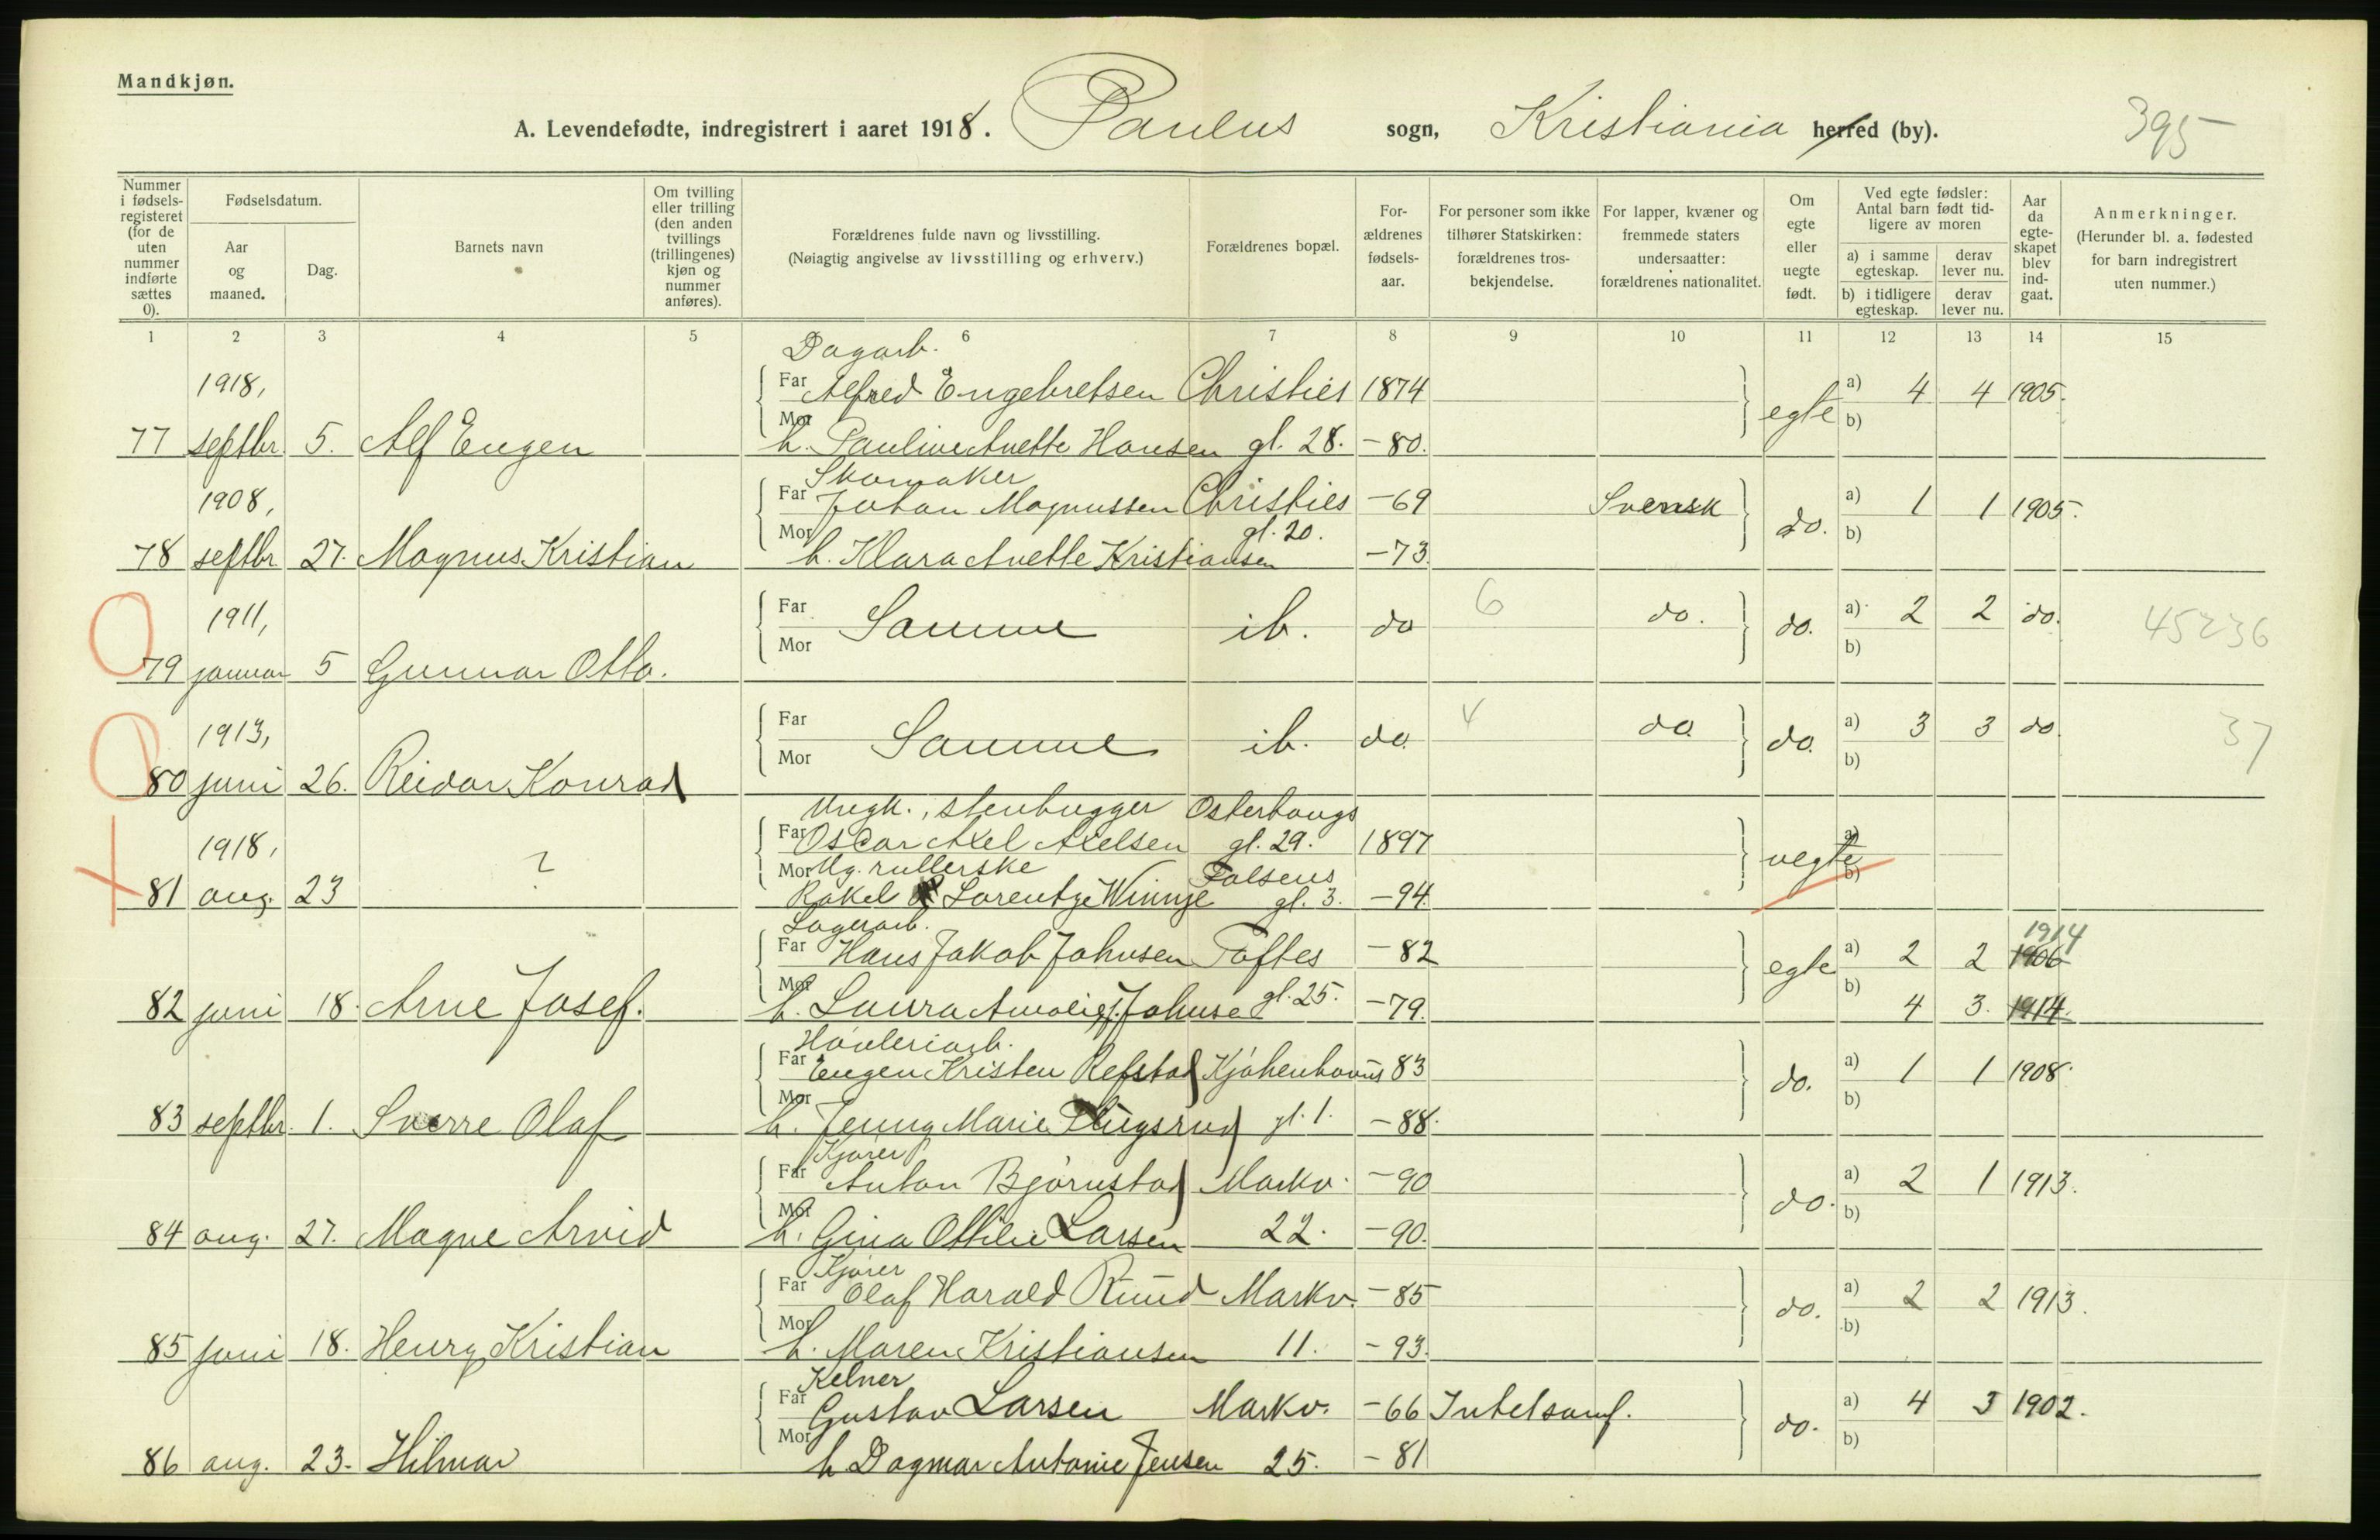 Mandkjøn.
A. Levendefødte, indregistrert i aaret 1918. Paulus sogn, Kristiania herred (by). 395
Nummer i fødselsregisteret (for de uten nummer indførte sættes 0).
Fødselsdatum.
Aar og maaned.
Dag.
Barnets navn
Om tvilling eller trilling (den anden tvillings (trillingenes) kjøn og nummer anføres).
Forældrenes fulde navn og livsstilling.
(Nøiagtig angivelse av livsstilling og erhverv.)
Forældrenes bopæl.
Forældrenes fødselsaar.
For personer som ikke tilhører Statskirken: forældrenes trosbekjendelse.
For lapper, kvæner og fremmede staters undersaatter: forældrenes nationalitet.
Om egte eller uegte født.
Ved egte fødsler: Antal barn født tidligere av moren
a) i samme egteskap. derav lever nu.
b) i tidligere egteskap. derav lever nu.
Aar da egteskapet blev indgaat.
Anmerkninger.
(Herunder bl. a. fødested for barn indregistrert uten nummer.)
1 2 3 4 5 6 7 8 9 10 11 12 13 14 15
Dagarb.
1918, Far Alfred Engebretsen Christies 1874 egte a) 4 4 1905.
77 septbr. 5. Alf Eugen Mor h. Pauline Anette Hansen gl. 28. -80. b)
Skomaker
1908, Far Johan Magnussen Christies -69 Svensk do. a) 1 1 1905.
78 septbr 27. Magnus Kristian Mor h. Klara Anette Kristiansen gl. 20. -73. b)
1911, Far Samme ib. do 6 do. do. a) 2 2 do. 45236
79 januar 5 Gunnar Otto. Mor b)
1913, Far Samme ib. do. 4 do. do. a) 3 3 do 37
80 juni 26. Reidar Konrad Mor b)
Ungk., stenhugger Osterhaugs
1918, Far Oscar Axel Axelsen gl. 29. 1897 uegte a)
Mor Ug. rullerske Falsens
81 aug. 23 ? Rakel Lorentze Winnge gl. 3. -94. b)
Lagerarb.
Far Hans Jakob Johnsen Toftes -82 egte a) 2 2 1906 1914
82 juni 18. Arne Josef. Mor h. Laura Amalie f. Johnse gl. 25. -79. b) 4 3. 1914.
Far Eugen Kristen Refstad Kjøbenhavns 83 do. a) 1 1 1908.
83 septbr. 1. Sverre Olaf Mor h. Jenny Marie gl. 1. -88. b)
Kjører
Far Anton Bjørnstad Markv. -90 do. a) 2 1 1913.
84 aug. 27. Magne Arvid Mor h. Gina Othilie Larsen 22. -90. b)
Kjører
Far Olaf Harald Ruud Markv. -85 do. a) 2 2 1913.
85 juni 18. Henry Kristian Mor h. Maren Kristiansen 11. -93. b)
Kelner
Far Gustav Larsen Markv. -66 do. a) 4 3 1902.
86 aug. 23. Hilmar Mor h Dagmar Antonie Jensen 25. -81 b)